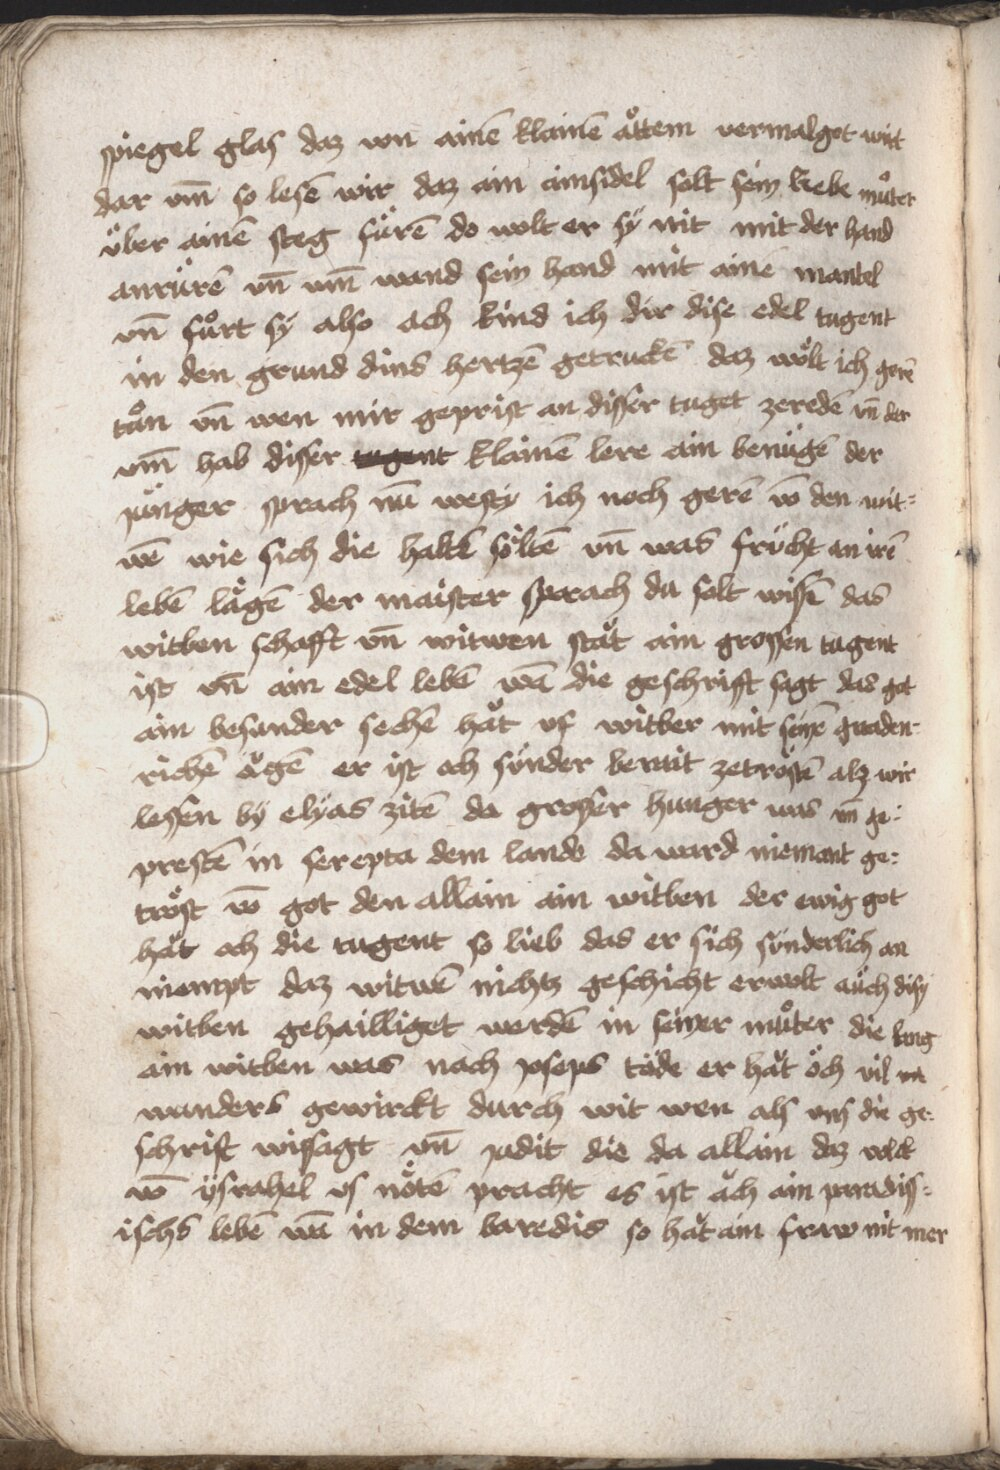 spiegel glas daz von ainē klainē aͤttem vermalget wirt
dar vm̄ so lesē wir daz ain ainsidel solt sein liebe muͦter
üͤber ainē steg fuͤrē do wolt er sÿ nit mit der hand
anruͤrē vn̄ vm̄ wand sein hand mit ainē mantel
vn̄ fuͦrt sÿ also ach kind ich dir dise edel tugent
in den grund dins hertzē getruckē daz woͤlt ich gerē
taͦn vn̄ wen mir geprist an disser tuget zeredē vn̄ dar
vm̄ hab disser klainē lere ain benuͤgē der
junger sprach nu westy ich noch gerē vō den wit=
wē wie sich die haltē soͤltē vn̄ was frücht an irē
lebē laͤgē der maister sprach du solt wissē das
witben schafft vn̄ witwen staͤt ain grossen tugent
ist vn̄ ain edel lebē wā die geschrifft sagt das got
ain besunder sechē haͤt vf witber mit seinē gnaden
richē aͧgē er ist och sunder berait zetroͤstē alz wir
lessen bÿ elÿas zitē da grosser hunger was vn̄ ge=
prestē in serepta dem lande da ward niemant ge=
troͤst vō got den allain ain witben der ewig got
haͤt och die tugent so lieb das er sich sunderlich an
nempt daz witwē nichtz geschicht er wolt auch disy
witben gehailliget werdē in seiner muͦter die lang
ain witben was nach joseps tode er haͤt och vil
wunders gewirckt durch wit wen als vns die ge=
schrift wissagt vn̄ judit die da allain daz volck
vō ÿsrahel vs noͤtē pracht es ist aͧch ain paradiss=
ischs lebē wā in dem baredis so haͤt ain fraw nit mer